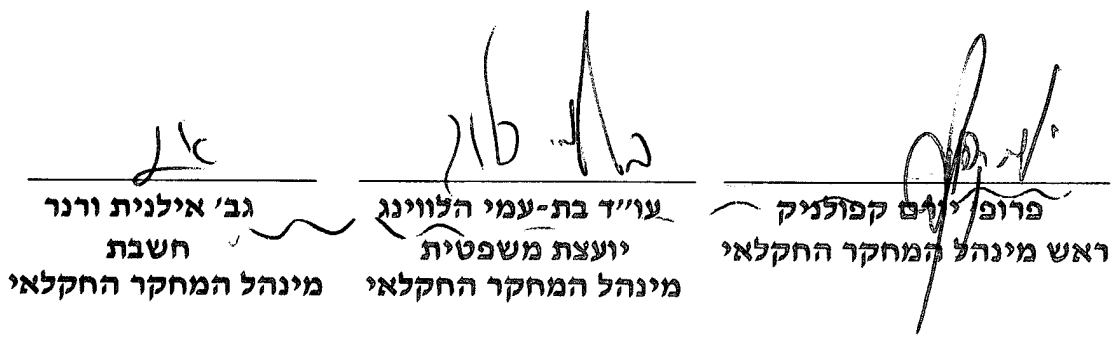 פרופ' יורם קפולניק
ראש מינהל המחקר החקלאי
עו"ד בת-עמי הלווינג
יועצת משפטית
מינהל המחקר החקלאי
גב' אילנית ורנר
חשבת
מינהל המחקר החקלאי